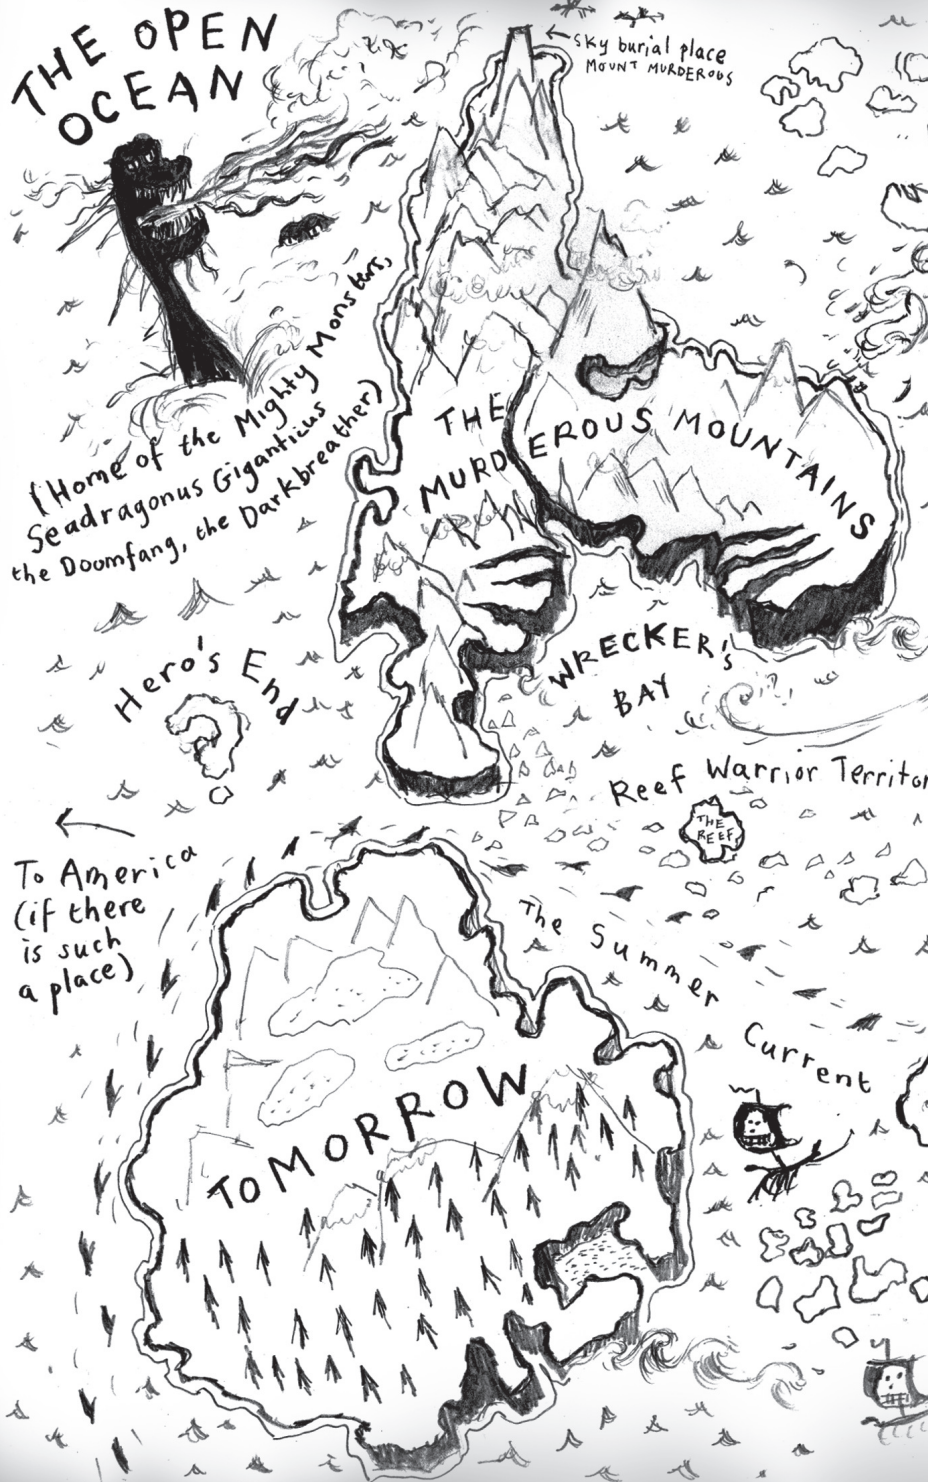 THE OPEN
OCEAN
sky burial place
MOUNT MURDEROUS
(Home of the Mighty Monsters,
Seadragonus Giganticus
the Doomfang, the Darkbreather)
THE
MURDEROUS MOUNTAINS
Hero's End
WRECKER'S
BAY
Reef Warrior Territor
THE
REEF
To America
(if there
is such
a place)
The Summer Current
TOMORROW